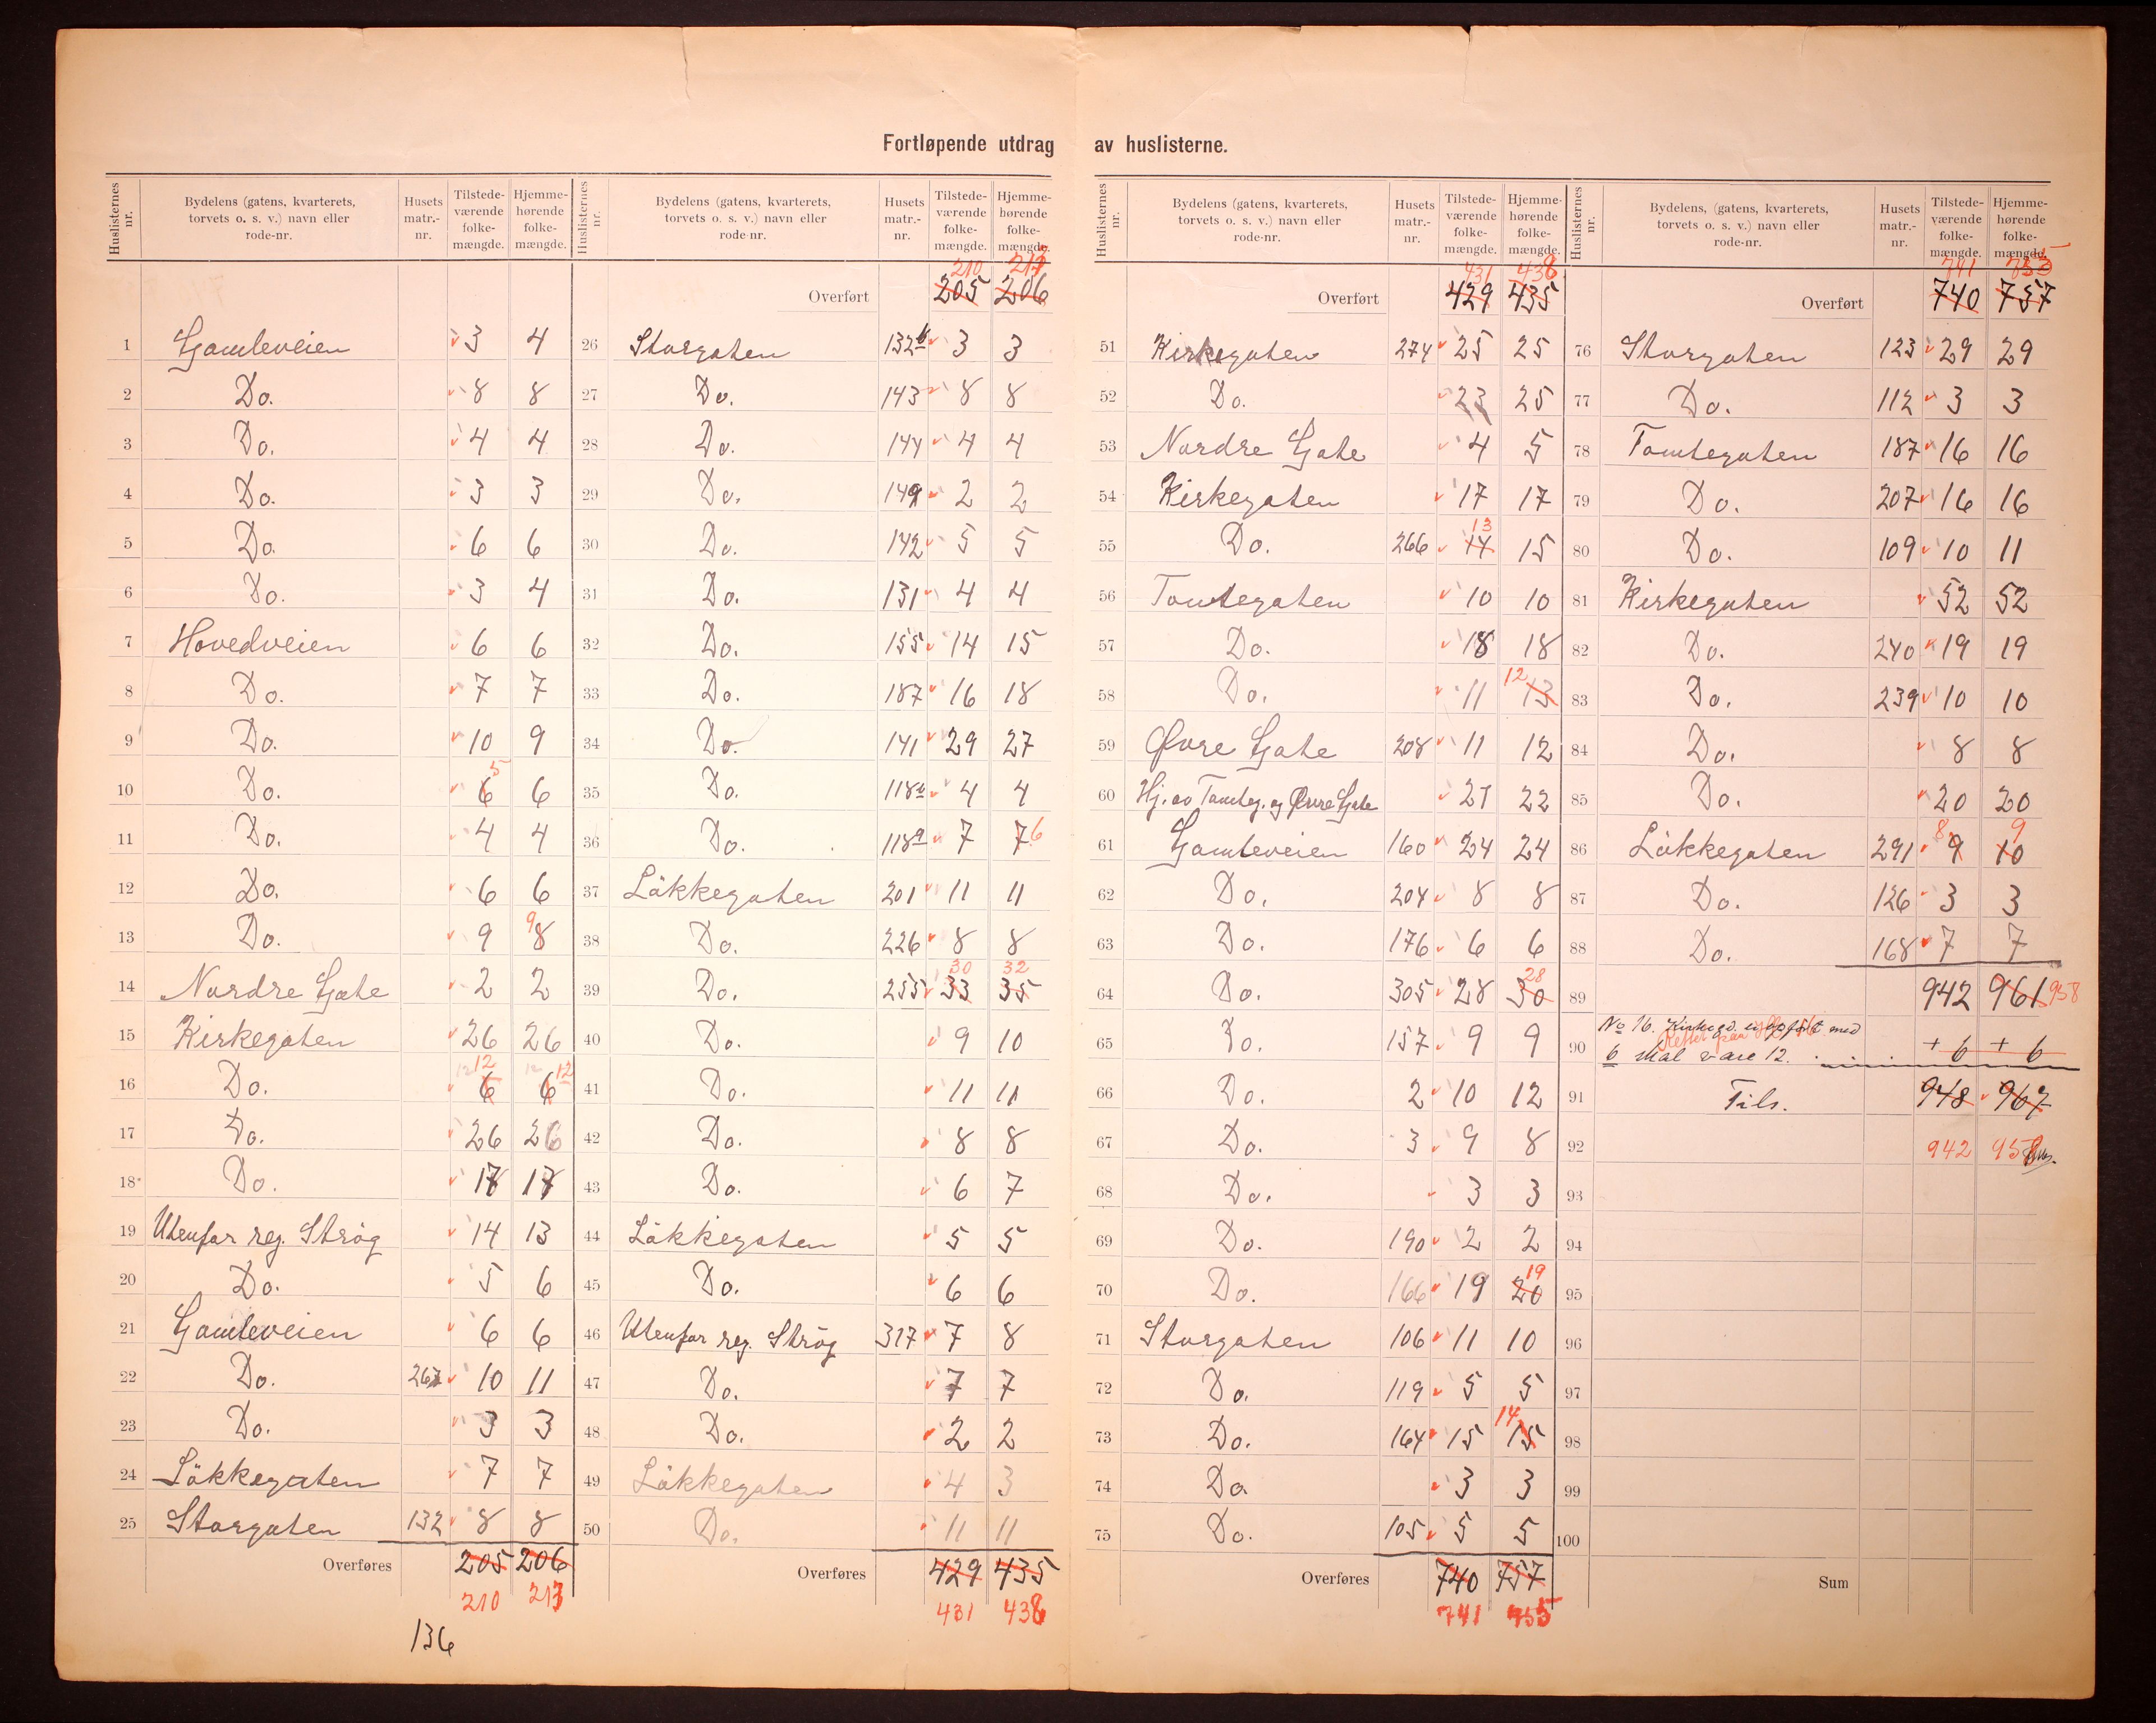 Fortløpende utdrag av huslisterne.
Huslisternes nr. Bydelens (gatens, kvarterets, torvets o. s. v.) navn eller rode-nr. Husets matr.-nr. Tilstede-værende folke-mængde. Hjemme-hørende folke-mængde.
1 Gamleveien 3 4
2 Do. 8 8
3 Do. 4 4
4 Do. 3 3
5 Do. 6 6
6 Do. 3 4
7 Hovedveien 6 6
8 Do. 7 7
9 Do. 10 9
10 Do. 6 5 6
11 Do. 4 4
12 Do. 6 6
13 Do. 9 8 9
14 Nordre Gate 2 2
15 Kirkegaten 26 26
16 Do. 6 12 6 12
17 Do. 26 26
18 Do. 17 17
19 Utenfor reg. Strøg 14 13
20 Do. 5 6
21 Gamleveien 6 6
22 Do. 267 10 11
23 Do. 3 3
24 Løkkegaten 7 7
25 Storgaten 132 8 8
Overføres 205 206
210 213
136
Huslisternes nr. Bydelens (gatens, kvarterets, torvets o. s. v.) navn eller rode-nr. Husets matr.-nr. Tilstede-værende folke-mængde. Hjemme-hørende folke-mængde.
210 213
Overført 205 206
26 Storgaten 132b 3 3
27 Do. 143 8 8
28 Do. 144 4 4
29 Do. 149 2 2
30 Do. 142 5 5
31 Do. 131 4 4
32 Do. 155 14 15
33 Do. 187 16 18
34 Do. 141 29 27
35 Do. 118b 4 4
36 Do. 118a 7 7 6
37 Løkkegaten 201 11 11
38 Do. 226 8 8
39 Do. 255 33 30 35 32
40 Do. 9 10
41 Do. 11 11
42 Do. 8 8
43 Do. 6 7
44 Løkkegaten 5 5
45 Do. 6 6
46 Utenfor reg. Strøg 317 7 8
47 Do. 7 7
48 Do. 2 2
49 Løkkegaten 4 3
50 Do. 11 11
Overføres 429 435
431 438
Huslisternes nr. Bydelens (gatens, kvarterets, torvets o. s. v.) navn eller rode-nr. Husets matr.-nr. Tilstede-værende folke-mængde. Hjemme-hørende folke-mængde.
431 438
Overført 429 435
51 Kirkegaten 274 25 25
52 Do. 23 25
53 Nordre Gate 4 5
54 Kirkegaten 17 17
55 Do. 266 14 13 15
56 Tomtegaten 10 10
57 Do. 18 18
58 Do. 11 13 12
59 Øvre Gate 208 11 12
60 Hj. av Tomteg. og Øvre Gate 21 22
61 Gamleveien 160 24 24
62 Do. 204 8 8
63 Do. 176 6 6
64 Do. 305 28 30 28
65 Do. 157 9 9
66 Do. 2 10 12
67 Do. 3 9 8
68 Do. 3 3
69 Do. 190 2 2
70 Do. 166 19 20 19
71 Storgaten 106 11 10
72 Do. 119 5 5
73 Do. 164 15 15 14
74 Do 3 3
75 Do. 105 5 5
Overføres 740 757
741 755
Huslisternes nr. Bydelens, (gatens, kvarterets, torvets o. s. v.) navn eller rode-nr. Husets matr.-nr. Tilstede-værende folke-mængde. Hjemme-hørende folke-mængde.
741 755
Overført 740 757
76 Storgaten 123 29 29
77 Do. 112 3 3
78 Tomtegaten 187 16 16
79 Do. 207 16 16
80 Do. 109 10 11
81 Kirkegaten 52 52
82 Do. 240 19 19
83 Do. 239 10 10
84 Do. 8 8
85 Do. 20 20
86 Løkkegaten 291 9 8 10 9
87 Do. 126 3 3
88 Do. 168 7 7
89 942 961 958
90 No 16. er opført med
6 skal være 12. + 6 + 6
91 Tils. 948 967
92 942 958
93
94
95
96
97
98
99
100
Sum